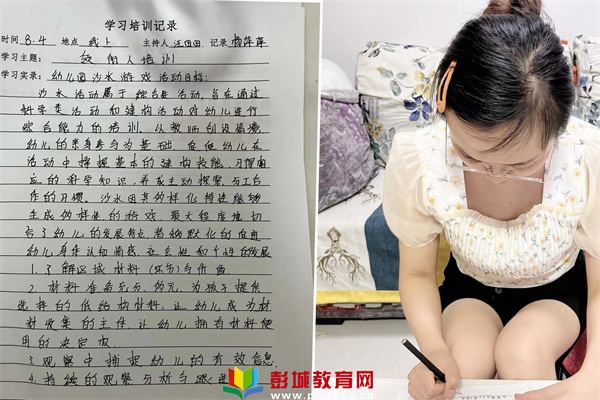 学习培训记录
时间 8.4 地点 线上 主持人 汪田田 记录
学习主题: 领雁人培训
学习实录: 幼儿园沙水游戏活动目标:
沙水活动属于综合性活动,旨在通过
科学类活动和建构活动对幼儿进行
综合能力的培训,以教师创设情境
幼儿的亲身参与为基础,促使幼儿在
活动中掌握基本的建构技能,习得相
应的科学知识,养成主动探索,与工合
作的习惯。沙水因其多样化特性能够
生成多样性的游戏,最大程度地切
合了幼儿的发展特点,潜移默化的促进
幼儿身体认知情感,社会性和个性的发展
1.了解区域材料(环节)与价值
2.材料准备充分,多元,为孩子提供
选择的低结构材料,让幼儿成为材
料收集的主体,让幼儿拥有材料使
用的决定权.
3.观察中捕捉幼儿的有效信息.
4.持续的观察分析与跟进
彭城教育网